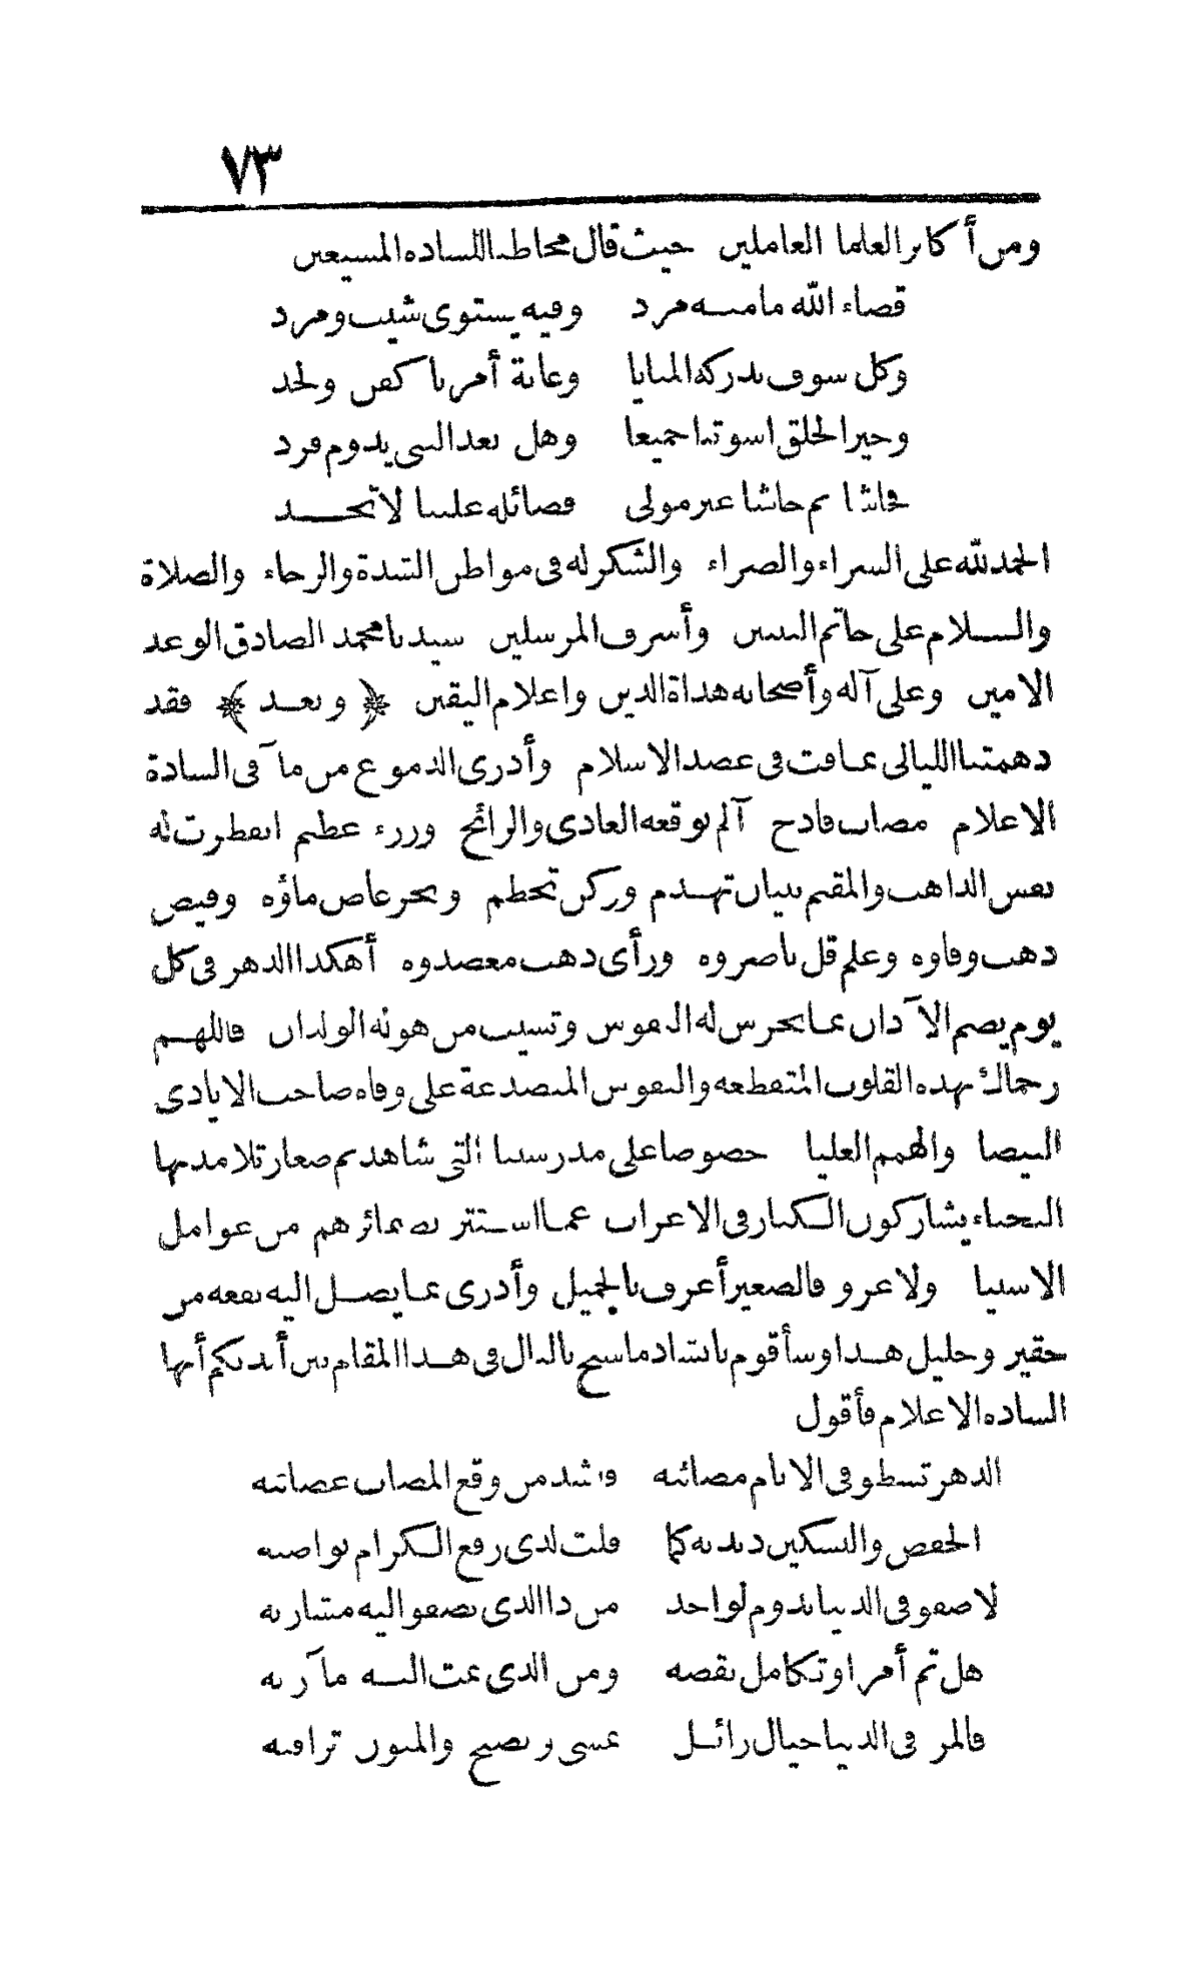 ٧٣
ومن أكابر العلما العاملين حيث قال مخاطبا للساده المشيعين
قضاء الله مامنه مرد وفيه يستوى شيب ومرد
وكل سوف تدركه المنايا وغاية أمرنا كفن ولحد
وخير الخلق اسوتنا جميعا وهل بعد النبى يدوم فرد
فحاشا ثم حاشا غير مولى فضائله علينا لا تحد
الحمد لله على السراء والضراء والشكر له فى مواطن الشدة والرخاء والصلاة
والسلام على خاتم النبيين وأشرف المرسلين سيدنا محمد الصادق الوعد
الامين وعلى آله وأصحابه هداة الدين واعلام اليقين ﴿ وبعد ﴾ فقد
دهمتنا الليالى بما فت فى عضد الاسلام وأذرى الدموع من مآقى السادة
الاعلام مصاب فادح آلم بوقعه الغادى والرائح ورزء عظيم انفطرت له
نفس الذاهب والمقيم بنيان تهدم وركن تحطم وبحر غاض ماؤه وفيض
ذهب وفاوه وعلم قل ناصروه ورأى ذهب معضدوه أهكذا الدهر فى كل
يوم يصم الآذان بما تخرس له النفوس وتشيب من هونه الولدان فاللهم
رحماك بهذه القلوب المتقطعه والنفوس المتصدعة على وفاه صاحب الايادى
البيضا والهمم العليا خصوصا على مدرستنا التى شاهدتم صغار تلامذتها
النجباء يشاركون الكبار فى الاعراب عما استتر بضمائرهم من عوامل
الاسيا ولا غرو فالصغير أعرف بالجميل وأدرى بما يصل اليه نفعه من
حقير وجليل هذا وسأقوم بانشاد ما سنح بالبال فى هذا المقام بين أيديكم أيها
الساده الاعلام فأقول
الدهر تسطو فى الانام مصائبه وأشد من وقع المصاب عصائبه
الخفض والتسكين ديدنه كما فلت لدى رفع الكرام نواصبه
لا صفو فى الدنيا يدوم لواحد من ذا الذى تصفو اليه مشاربه
هل تم أمر او تكامل نقصه ومن الذى تمت اليه مآربه
فالمر فى الدنيا خيال زائل يمسى ويصبح والمنون تراقبه